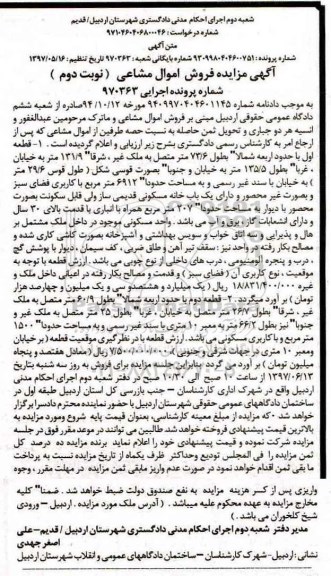 شعبه دوم اجرای احکام مدنی دادگستری شهرستان اردبیل/قدیم
شماره درخواست: ۹۷۱۰۴۶۰۴۰۶۸۰۰۰۴۶
متن آگهی
شماره پرونده: ۹۳۰۹۹۸۰۴۰۴۶۰۰۷۵۱ شماره بایگانی شعبه: ۹۷۰۳۶۳ تاریخ تنظیم: ۱۳۹۷/۰۵/۱۶
آگهی مزایده فروش اموال مشاعی ( نوبت دوم )
شماره پرونده اجرایی ۹۷۰۳۶۳
به موجب دادنامه شماره ۹۴۰۹۹۷۰۴۰۴۶۰۱۱۴۵ مورخه ۹۴/۱۰/۱۲ صادره از شعبه ششم
دادگاه عمومی حقوقی اردبیل مبنی بر فروش اموال مشاعی و ماترک مرحومین عبدالغفور و
انسیه هر دو جباری و تحویل ثمن حاصله به نسبت حصه طرفین از اموال مشاعی که پس از
ارجاع امر به کارشناس رسمی دادگستری بشرح زیر ارزیابی و اعلام گردیده است . ۱- قطعه
اول با حدود اربعه شمالا" بطول ۷۳/۶ متر متصل به ملک غیر ، شرقا" ۱۳۱/۹ متر به خیابان
، غربا" بطول ۱۳۵/۵ متر به خیابان و جنوبا" بصورت قوسی شکل ( طول قوس ۲۹/۶ متر
) به خیابان با سند غیر رسمی و به مساحت حدودا" ۶۹۱۲ متر مربع با کاربری فضای سبز
و بصورت غیر محصور و دارای یک باب خانه مسکونی قدیمی ساز ولی قابل سکونت بصورت
محصور با دیوار به مساحت حدودا" ۲۰۷ متر مربع همراه با انباری با قدمت بالای ۳۰ سال
و دارای انشعابات گاز و برق و آب می باشد. واحد مسکونی موجود در داخل ملک مشتمل بر
هال و پذیرایی و سه اتاق خواب و سرویس بهداشتی و آشپزخانه بصورت کاشی کاری شده و
مصالح بکار رفته در واحد نیز : سقف تیر آهن و طاق ضربی ، کف سیمان ، دیوار با پوشش گچ
، درب و پنجره آلومینیومی ، درب های داخلی از نوع چوبی می باشد. ارزش قطعه با توجه به
موقعیت ، نوع کاربری آن ( فضای سبز ) و قدمت و مصالح بکار رفته در اعیانی داخل ملک و
غیره ۱۸۸۳۱۴۰۰۰۰۰ ریال ( یک میلیارد و هشتصد و هشتاد و سه میلیون و یکصد و چهل هزار
تومان ) بر آورد میگردد . ۲- قطعه دوم با حدود اربعه شمالا" بطول ۶۰/۹ متر متصل به ملک
غیر ، شرقا" بطول ۲۶/۷ متر متصل به خیابان ، غربا" بطول ۲۵ متر متصل به ملک غیر و
جنوبا" نیز بطول ۶۶/۲ متر به معبر ۱۰ متری با سند غیر رسمی و به مساحت حدودا" ۱۵۰۰
متر مربع و با کاربری مسکونی می باشد. ارزش قطعه با در نظر گیری موقعیت قطعه (بر خیابان
ومعبر ۱۰ متری در جهات شرقی و جنوبی) ۷/۵۰۰/۰۰۰/۰۰۰ ریال ( معادل هفتصد و پنجاه
میلیون تومان ) بر آورد می گردد. بنابراین جلسه مزایده برای فروش به روز سه شنبه بتاریخ
۱۳۹۷/۰۶/۱۳ از ساعت ۱۰ صبح الی ۱۰/۳۰ صبح در دفتر شعبه دوم اجرای احکام مدنی
اردبیل واقع در شهرک اداری کارشناسان – جنب بازرسی کل استان اردبیل طبقه اول در
ساختمان دادگاههای عمومی حقوقی شهرستان اردبیل با حضور نماینده محترم دادسرا برگزار
خواهد شد. که مزایده از مبلغ معینه کارشناسی، بعنوان قیمت پایه شروع ومورد مزایده به
بالاترین قیمت پیشنهادی فروخته خواهد شد. طالبین می توانند در موعد مقرر فوق در جلسه
مزایده شرکت نموده و قیمت پیشنهادی خود را اعلام نماید برنده مزایده ده درصد کل
ثمن مزایده را فی المجلس تودیع وحداکثر ظرف یکماه از تاریخ مزایده نسبت به پرداخت
ما بقی ثمن اقدام خواهد نمود در صورت عدم واریز مابقی ثمن مزایده در مهلت مقرر ، وجوه
واریزی پس از کسر هزینه مزایده به نفع صندوق دولت ضبط خواهد شد . ضمنا" کلیه
مخارج مزایده به عهده محکوم علیه میباشد . ( آدرس ملک مورد مزایده : اردبیل – ورودی
شیخ کلخوران می باشد. )
مدیر دفتر شعبه دوم اجرای احکام مدنی دادگستری شهرستان اردبیل / قدیم– علی
اصغر جهدی
نشانی: اردبیل– شهرک کارشناسان – ساختمان دادگاههای عمومی و انقلاب شهرستان اردبیل